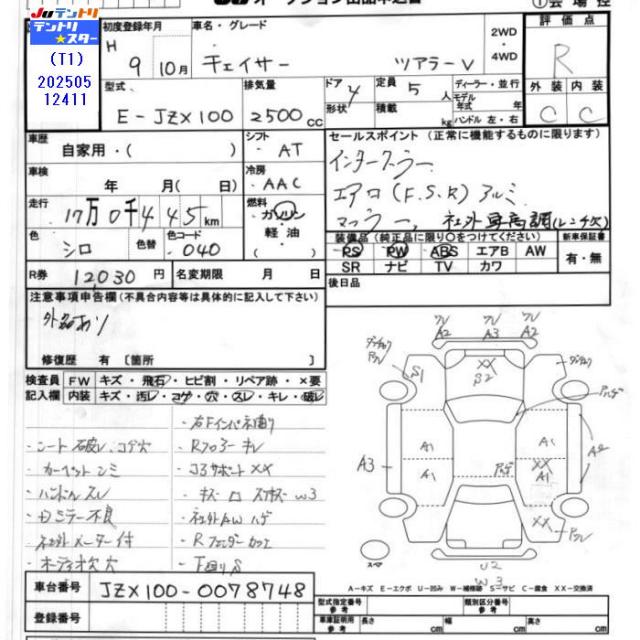 JUテントリ
テントリ★スター
(T1)
202505
12411
オークション出品申込書
①会場控
初度登録年月
車名・グレード
2WD
4WD
評価点
H
9年10月
チェイサー
ツアラーV
R
型式
排気量
ドア
4
定員
5人
ディーラー・並行
外装
内装
E-JZX100
2500cc
形状
積載
kg
モデル年式
年式
ハンドル 左・右
C
C
車歴
シフト
セールスポイント(正常に機能するものに限ります)
自家用・( )
AT
インタークーラー
車検
冷房
年 月( 日)
AAC
エアロ(F.S.R) アルミ
走行
燃料
17万0千445km
ガソリン
軽油
マフラー, 社外車高調(レンチ欠)
色
色替
色コード
装備品(純正品に限り〇をつけてください)
新車保証書
シロ
040
PS PW ABS エアB AW
有・無
SR ナビ TV カワ
R券
12,030円
名変期限 月 日
後日品
注意事項申告欄(不具合内容等は具体的に記入して下さい)
外品あり
修復歴 有 〔箇所
ワレ A2
ワレ A3
ワレ A2
検査員記入欄
FW
キズ・飛石・ヒビ割・リペア跡・×要
内装
キズ・汚レ・コゲ・穴・スレ・キレ・破レ
S1
XX
S2
・右Fインパネ曲り
・シート破レ,コゲ穴
・Rフロアーキレ
・カーペットシミ
・コアサポートXX
・ハンドルスレ
・キズ
W3
・Dミラー不良
・社外AWハゲ
・社外メーター付
・Rフェンダーカッエ
・オーディオ欠 穴
・下回りS
A3
A1
A1
A1
XX
A1
A2
XX
スペア
U2
W3
車台番号
JZX100-0078748
A-キズ E-エクボ U-凹み W-補修跡 S-サビ C-腐食 XX-交換済
登録番号
型式指定番号
参考
類別区分番号
参考
車庫証明用
参考
長さ cm
幅 cm
高さ cm